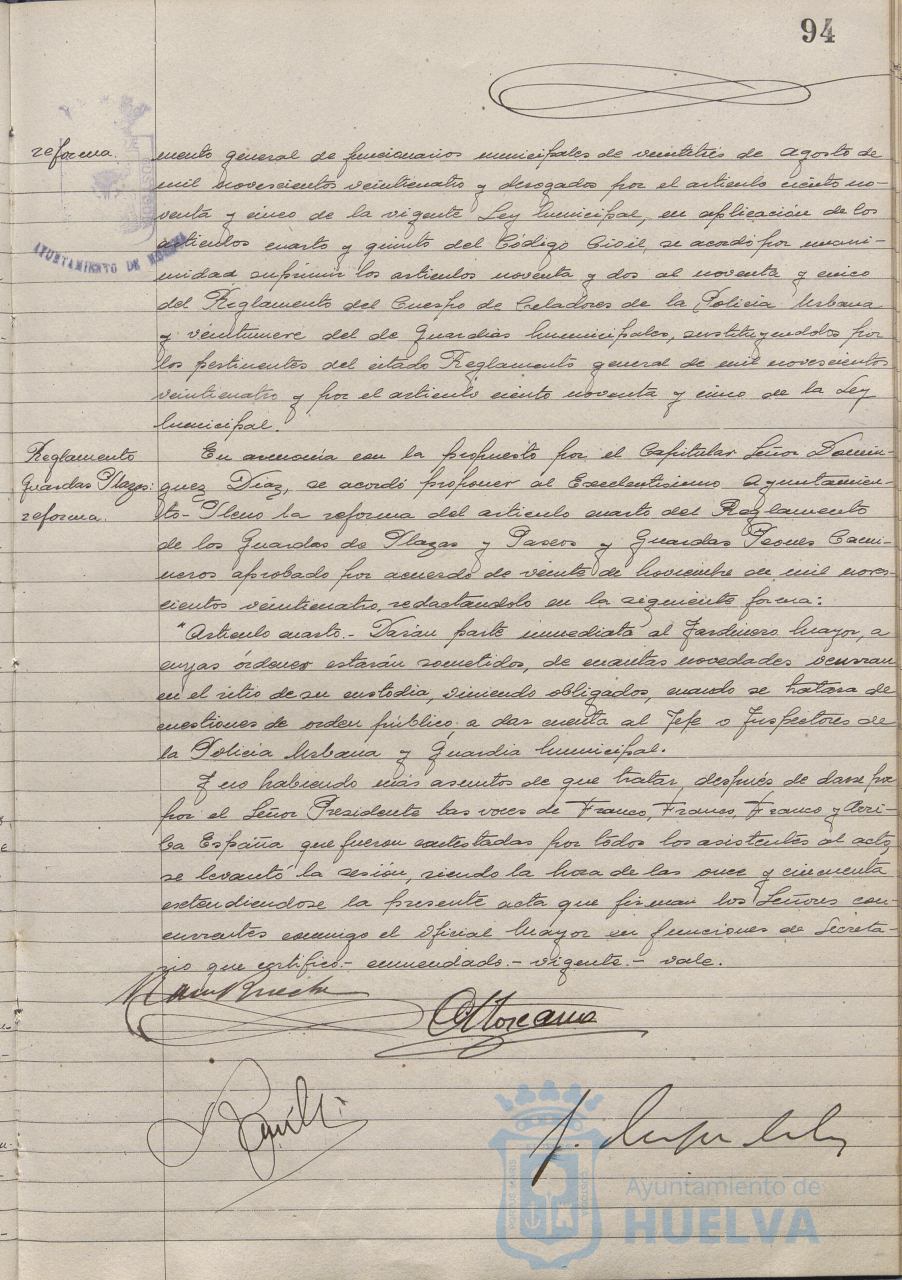 94
reforma.
mento general de funcionarios municipales de veintitrés de Agosto de
mil novescientos veinticuatro y derogados por el articulo ciento no-
venta y cinco de la vigente Ley Municipal, en aplicación de los
articulos cuarto y quinto del Código Civil, se acordó por unani-
midad suprimir los articulos noventa y dos al noventa y cinco
del Reglamento del Cuerpo de Celadores de la Policia Urbana
y veintinueve del de Guardias Municipales, sustituyendolos por
los pertinentes del citado Reglamento general de mil novescientos
veinticuatro y por el articulo ciento noventa y cinco de la Ley
Municipal.
AYUNTAMIENTO DE HUELVA
Reglamento
Guardas Plazas:
reforma.
En armonia con lo propuesto por el Capitular Señor Domin-
guez Diaz, se acordó proponer al Excelentisimo Ayuntamien-
to-Pleno la reforma del articulo cuarto del Reglamento
de los Guardas de Plazas y Paseos y Guardas Peones Cami-
neros aprobado por acuerdo de veinte de Noviembre de mil noves-
cientos veinticuatro, redactandolo en la siguiente forma:
"Articulo cuarto.- Darán parte inmediata al Jardinero Mayor, a
cuyas órdenes estarán sometidos, de cuantas novedades ocurran
en el sitio de su custodia, viniendo obligados, cuando se tratara de
cuestiones de orden público, a dar cuenta al Jefe o Inspectores de
la Policia Urbana y Guardia Municipal.
Y no habiendo más asuntos de que tratar, después de darse por
por el Señor Presidente las voces de Franco, Franco, Franco y Arri-
ba España que fueron contestadas por todos los asistentes al acto,
se levantó la sesión, siendo la hora de las once y cincuenta
extendiendose la presente acta que firman los Señores con-
currentes conmigo el Oficial Mayor en funciones de Secreta-
rio que certifico.- enmendado.- vigente.- vale.
PORTUS MARIS
CUSTODIA
Ayuntamiento de
HUELVA